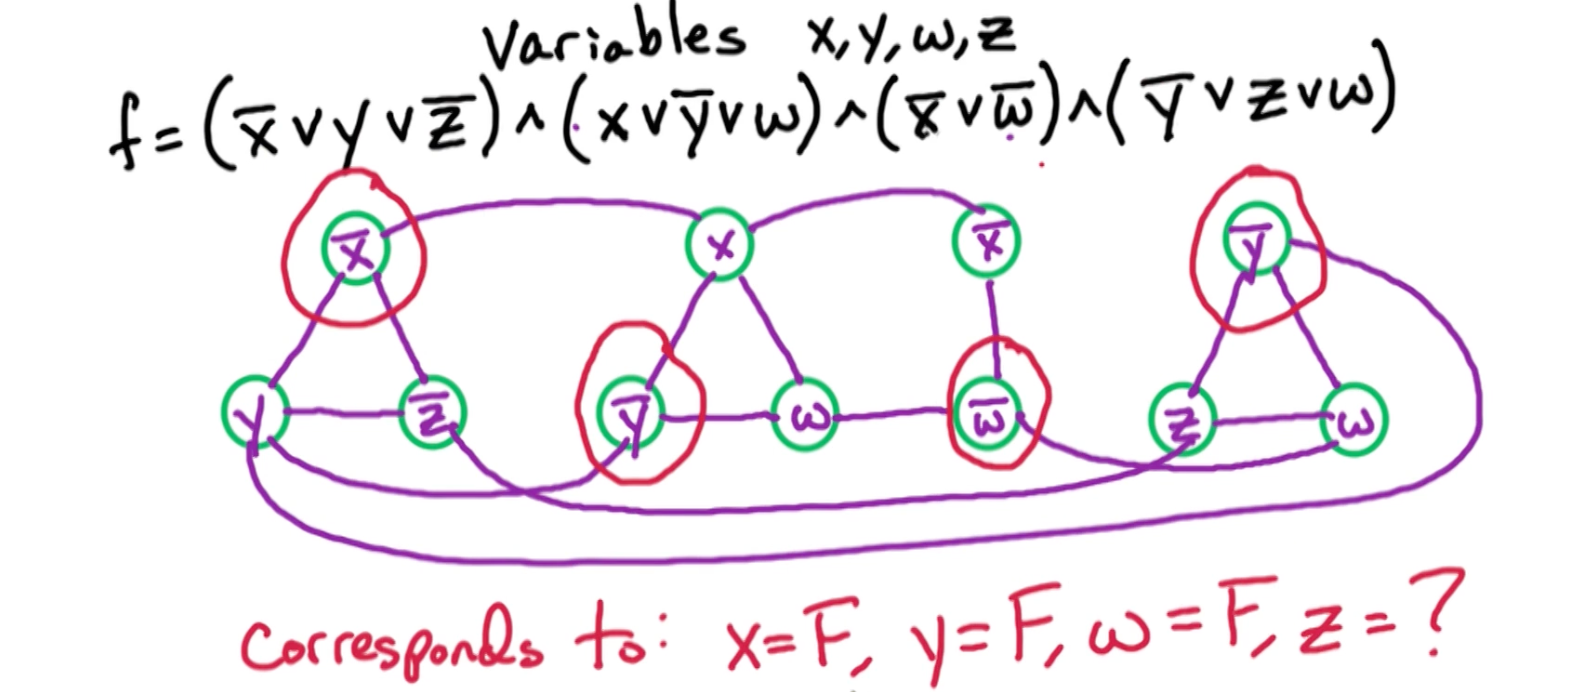 Variables x, y, ω, z
f = (x̅ ∨ y ∨ z̅) ∧ (x ∨ y̅ ∨ ω) ∧ (x̅ ∨ ω̅) ∧ (y̅ ∨ z ∨ ω)
x̅ x x̅ y̅
y z̅ y̅ ω ω̅ z ω
corresponds to: x=F, y=F, ω=F, z=?